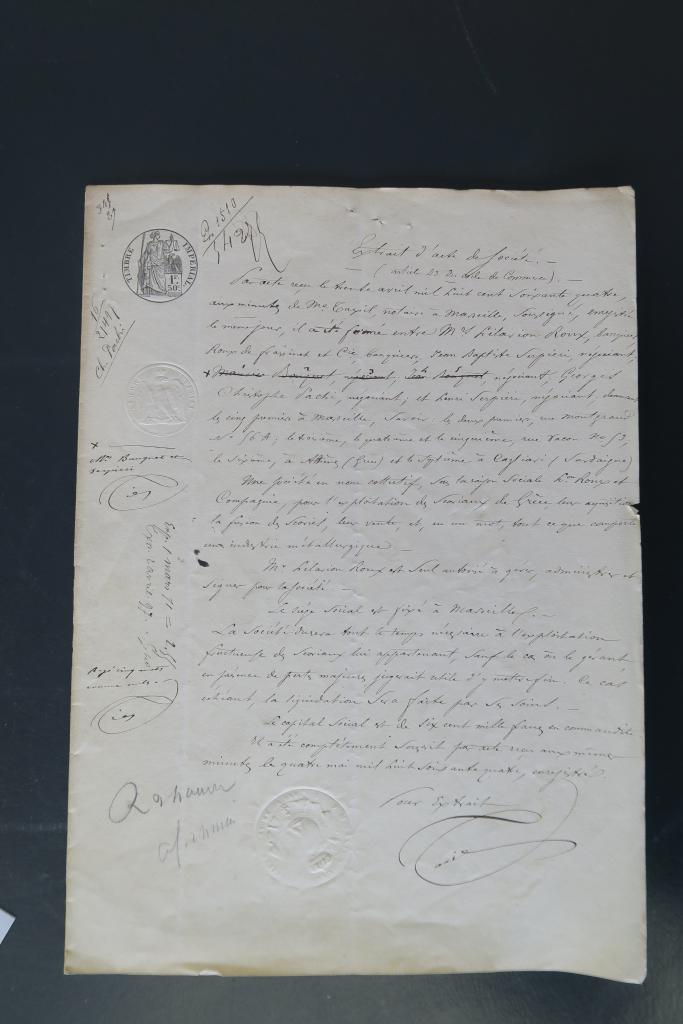 TIMBRE IMPERIAL
1F.
50c.
Extrait d'acte de Société. —
(article 23 du code de Commerce). —
Par acte reçu le trente avril mil huit cent soixante quatre,
aux minutes de Me Taxil, notaire à Marseille, soussigné, enregistré
le même jour, il a été formé entre Mrs Hilarion Roux, banquier,
Roux de Fraissinet et Cie, banquiers, Jean Baptiste Serpieri, négociant,
négociant, Georges
Christophe Pachi, négociant; et Henri Serpieri, négociant,
les cinq premiers à Marseille, Savoir: les deux premiers, rue Montgrand
No 56 A; le troisième, le quatrième et le cinquième, rue Vacon No 53,
le Sixième, à Athènes (Grèce) et le Septième à Cagliari (Sardaigne)
Une société en nom collectif, sous la raison Sociale Hon Roux et
Compagnie, pour l'exploitation des Scoriaux de Grèce leur acquisition
la fusion des Scories, leur vente, et, en un mot, tout ce que comporte
une industrie métallurgique. —
Mr Hilarion Roux est Seul autorisé à gérer, administrer et
signer pour la Société. —
Le siège Social est fixé à Marseille. —
La Société durera tout le temps nécessaire à l'exploitation
fructueuse des Scoriaux lui appartenant, sauf le cas où le gérant
en présence de pertes majeures jugerait utile d'y mettre fin. Ce cas
échéant, la liquidation sera faite par ses soins. —
Le capital Social est de six cent mille francs en commandite.
Il a été complètement Souscrit par acte reçu aux mêmes
minutes le quatre mai mil huit soixante quatre, enregistré.
Pour Extrait
Ch. Pachi
x
Banquet et
Serpieri
Rayé cinq mots
comme nuls